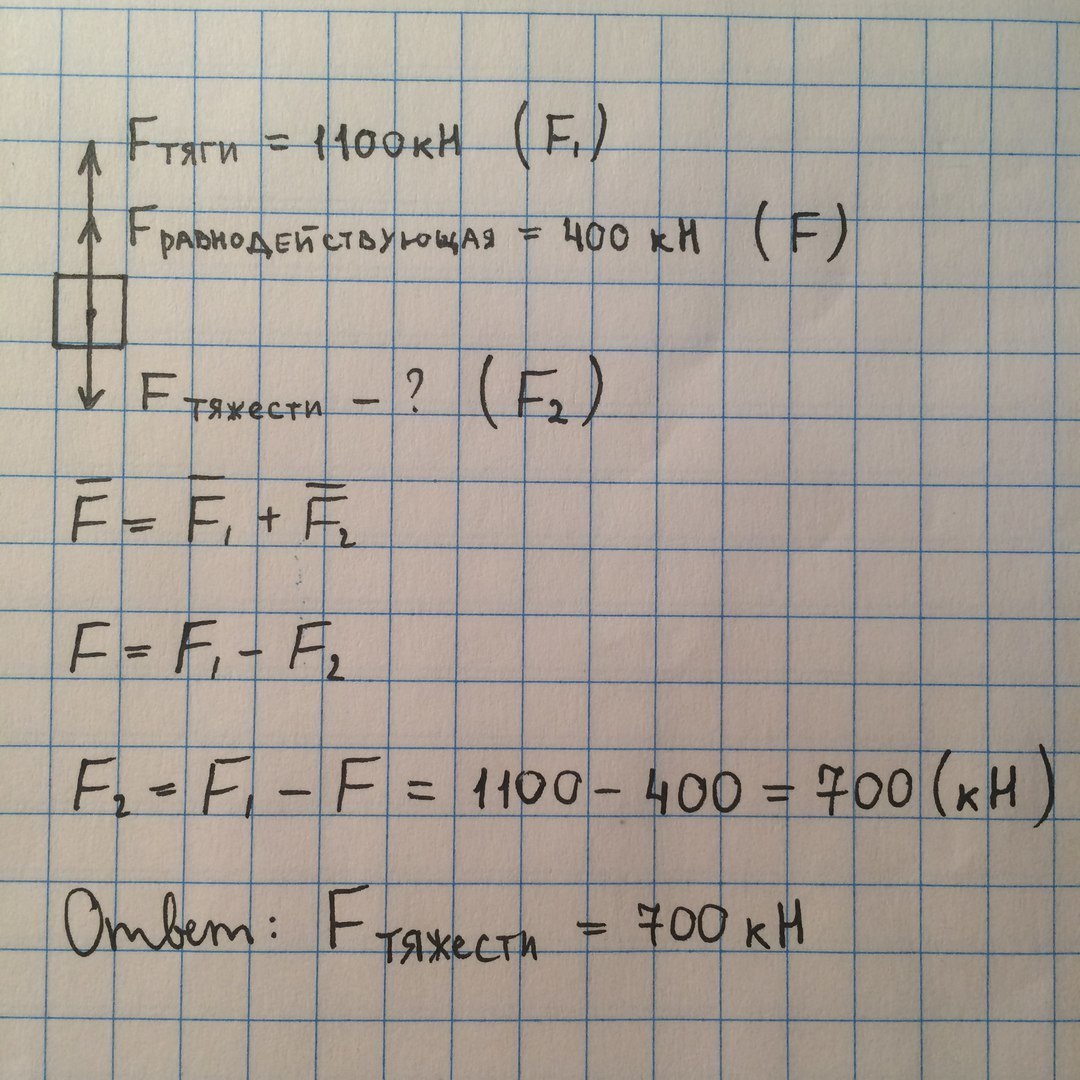 Fтяги = 1100кН (F₁)
Fравнодействующая = 400 кН (F)
Fтяжести – ? (F₂)
F̅ = F̅₁ + F̅₂
F = F₁ - F₂
F₂ = F₁ - F = 1100 - 400 = 700 (кН)
Ответ: Fтяжести = 700 кН